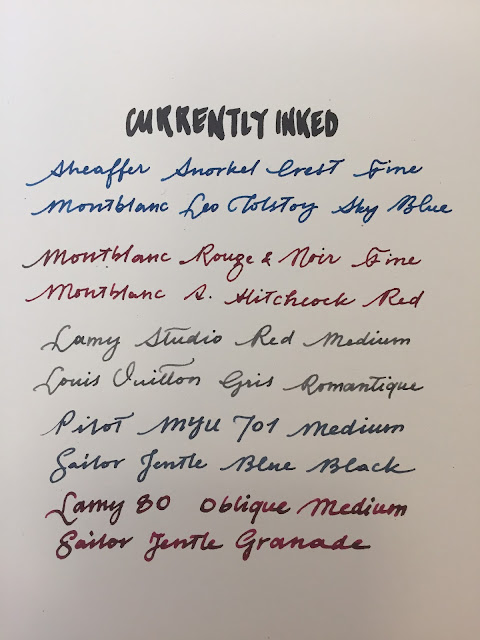 CURRENTLY INKED
Sheaffer Snorkel Crest Fine
Montblanc Leo Tolstoy Sky Blue
Montblanc Rouge & Noir Fine
Montblanc A. Hitchcock Red
Lamy Studio Red Medium
Louis Vuitton Gris Romantique
Pilot MYU 701 Medium
Sailor Jentle Blue Black
Lamy 80 Oblique Medium
Sailor Jentle Granade